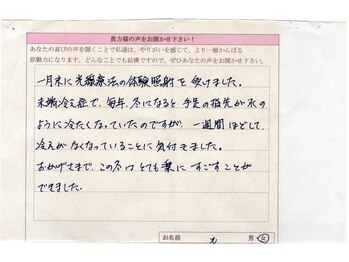 貴方様の声をお聞かせ下さい!
あなたの喜びの声を聞くことで私達は、やりがいを感じて、より一層がんばる
原動力になります。どんなことでも結構ですので、ぜひあなたの声をお聞かせ下さい。
一月末に光線療法の体験照射を受けました。
末端冷え症で、毎年、冬になると手足の指先が氷の
ように冷たくなっていたのですが、一週間ほどして、
冷えがなくなっていることに気付きました。
おかげさまで、この冬はとても楽にすごすことが
できました。
お名前 男・女